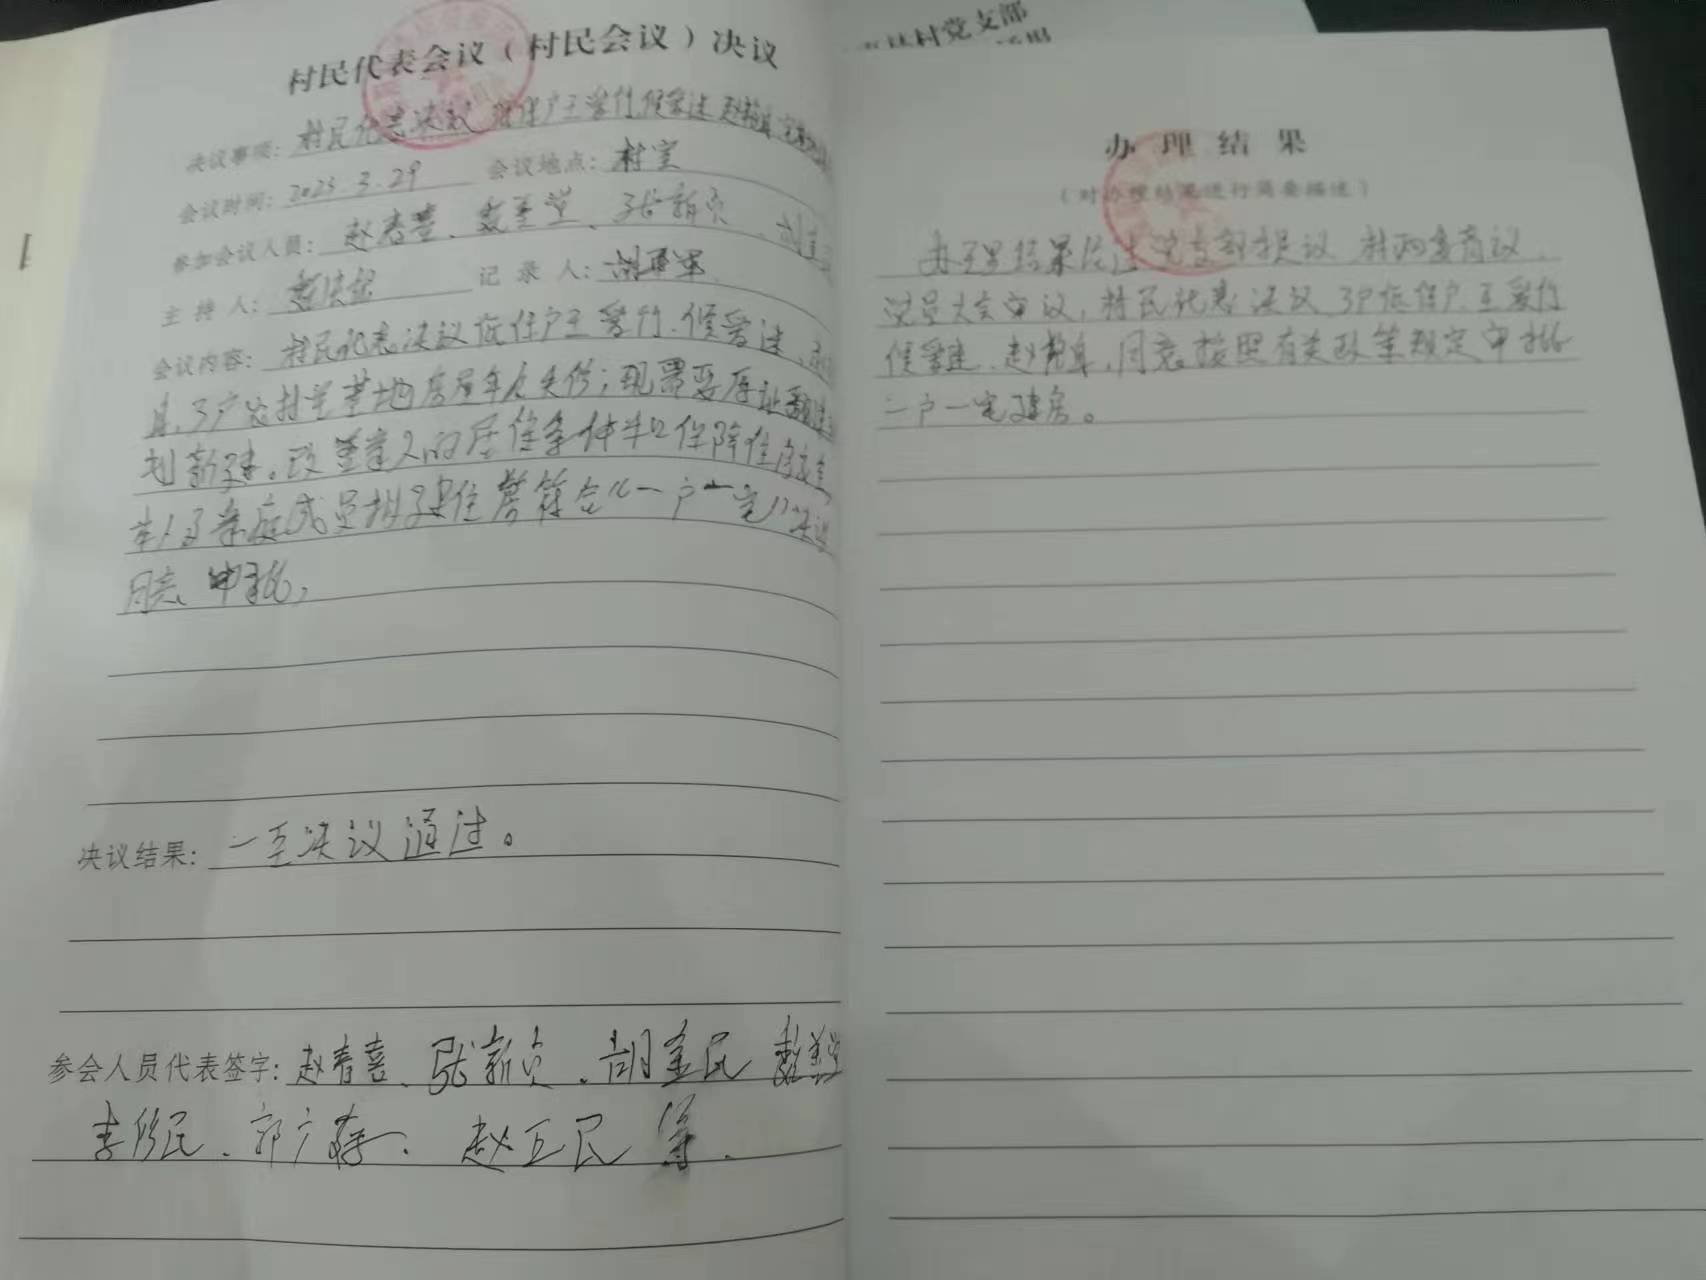 村民代表会议（村民会议）决议
决议事项：村民代表决议 低保户王爱竹.侯爱连
会议时间：2023.3.29 会议地点：村室
参加会议人员：赵春喜、张新贞
主持人： 记录人：
会议内容：村民代表决议低保户王爱竹.侯爱连、
3户农村宅基地房屋年久失修；现需要原址翻建
划新建。改善家人的居住条件和保障住房安全
本人及家庭成员拟建住宅符合“一户一宅”决议
同意申批，
决议结果：一至决议通过。
参会人员代表签字：赵春喜、张新贞、胡金民
李修民、郭广 、赵正民等.
村党支部
办理结果
（对办理结果进行简要描述）
办理结果经过党支部提议 村两委商议、
党员大会审议，村民代表决议3户低保户王爱竹
侯爱连、赵 ，同意按照有关政策规定审批
一户一宅建房。